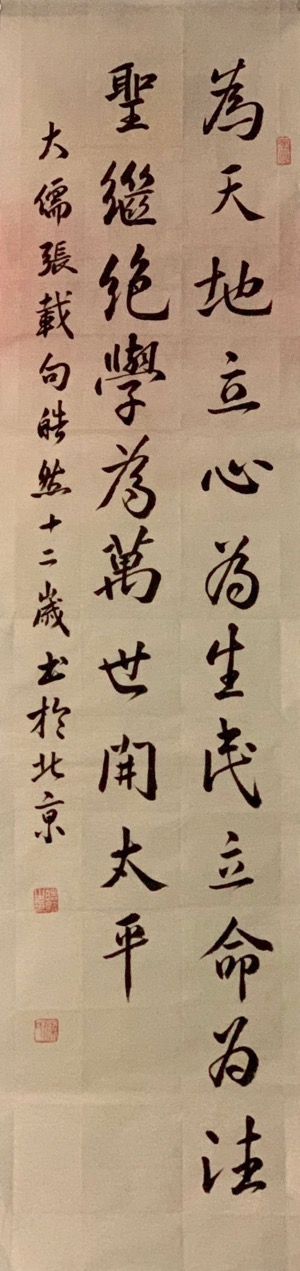 為天地立心為生民立命为往
聖繼絶學為萬世開太平
大儒張載句皓然十二歲书於北京